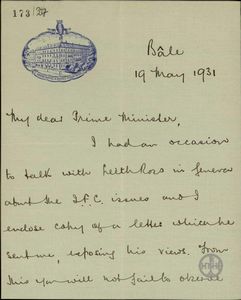 173/27
Bâle
19 May 1931
My dear Prime Minister,
I had an occasion
to talk with Leith Ross in Geneva
about the I.F.C. issues and I
enclose copy of a letter which he
sent me, exposing his views. From
this you will not fail to observe